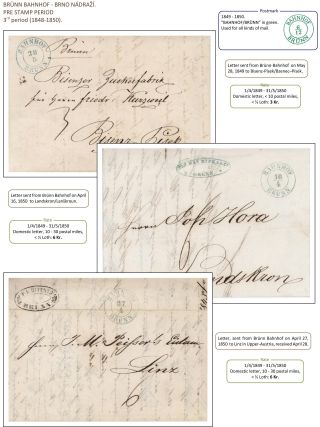 BRÜNN BAHNHOF - BRNO NÁDRAŽÍ.
PRE STAMP PERIOD
3rd period (1848-1850).
Postmark
1849 - 1850.
"BAHNHOF/BRÜNN" in green.
Used for all kinds of mail.
BAHNHOF
28
5
BRÜNN
Brünn
Bisenzer Zuckerfabrik
für Herrn Friedr.
Bisenz
Letter sent from Brünn Bahnhof on May
28, 1849 to Bisenz-Pisek/Bzenec-Písek.
Rate
1/4/1849 - 31/5/1850
Domestic letter, < 10 postal miles,
< ½ Loth: 3 Kr.
Letter sent from Brünn Bahnhof on April
16, 1850 to Landskron/Lanškroun.
Rate
1/4/1849 - 31/5/1850
Domestic letter, 10 - 30 postal miles,
< ½ Loth: 6 Kr.
BAHNHOF
16
4
BRÜNN
Herrn Joh Hora
Landskron
Letter, sent from Brünn Bahnhof on April 27,
1850 to Linz in Upper-Austria, received April 28.
Rate
1/4/1849 - 31/5/1850
Domestic letter, 10 - 30 postal miles,
< ½ Loth: 6 Kr.
BRÜNN
27
BRÜNN
Herrn J. M.
Linz
6